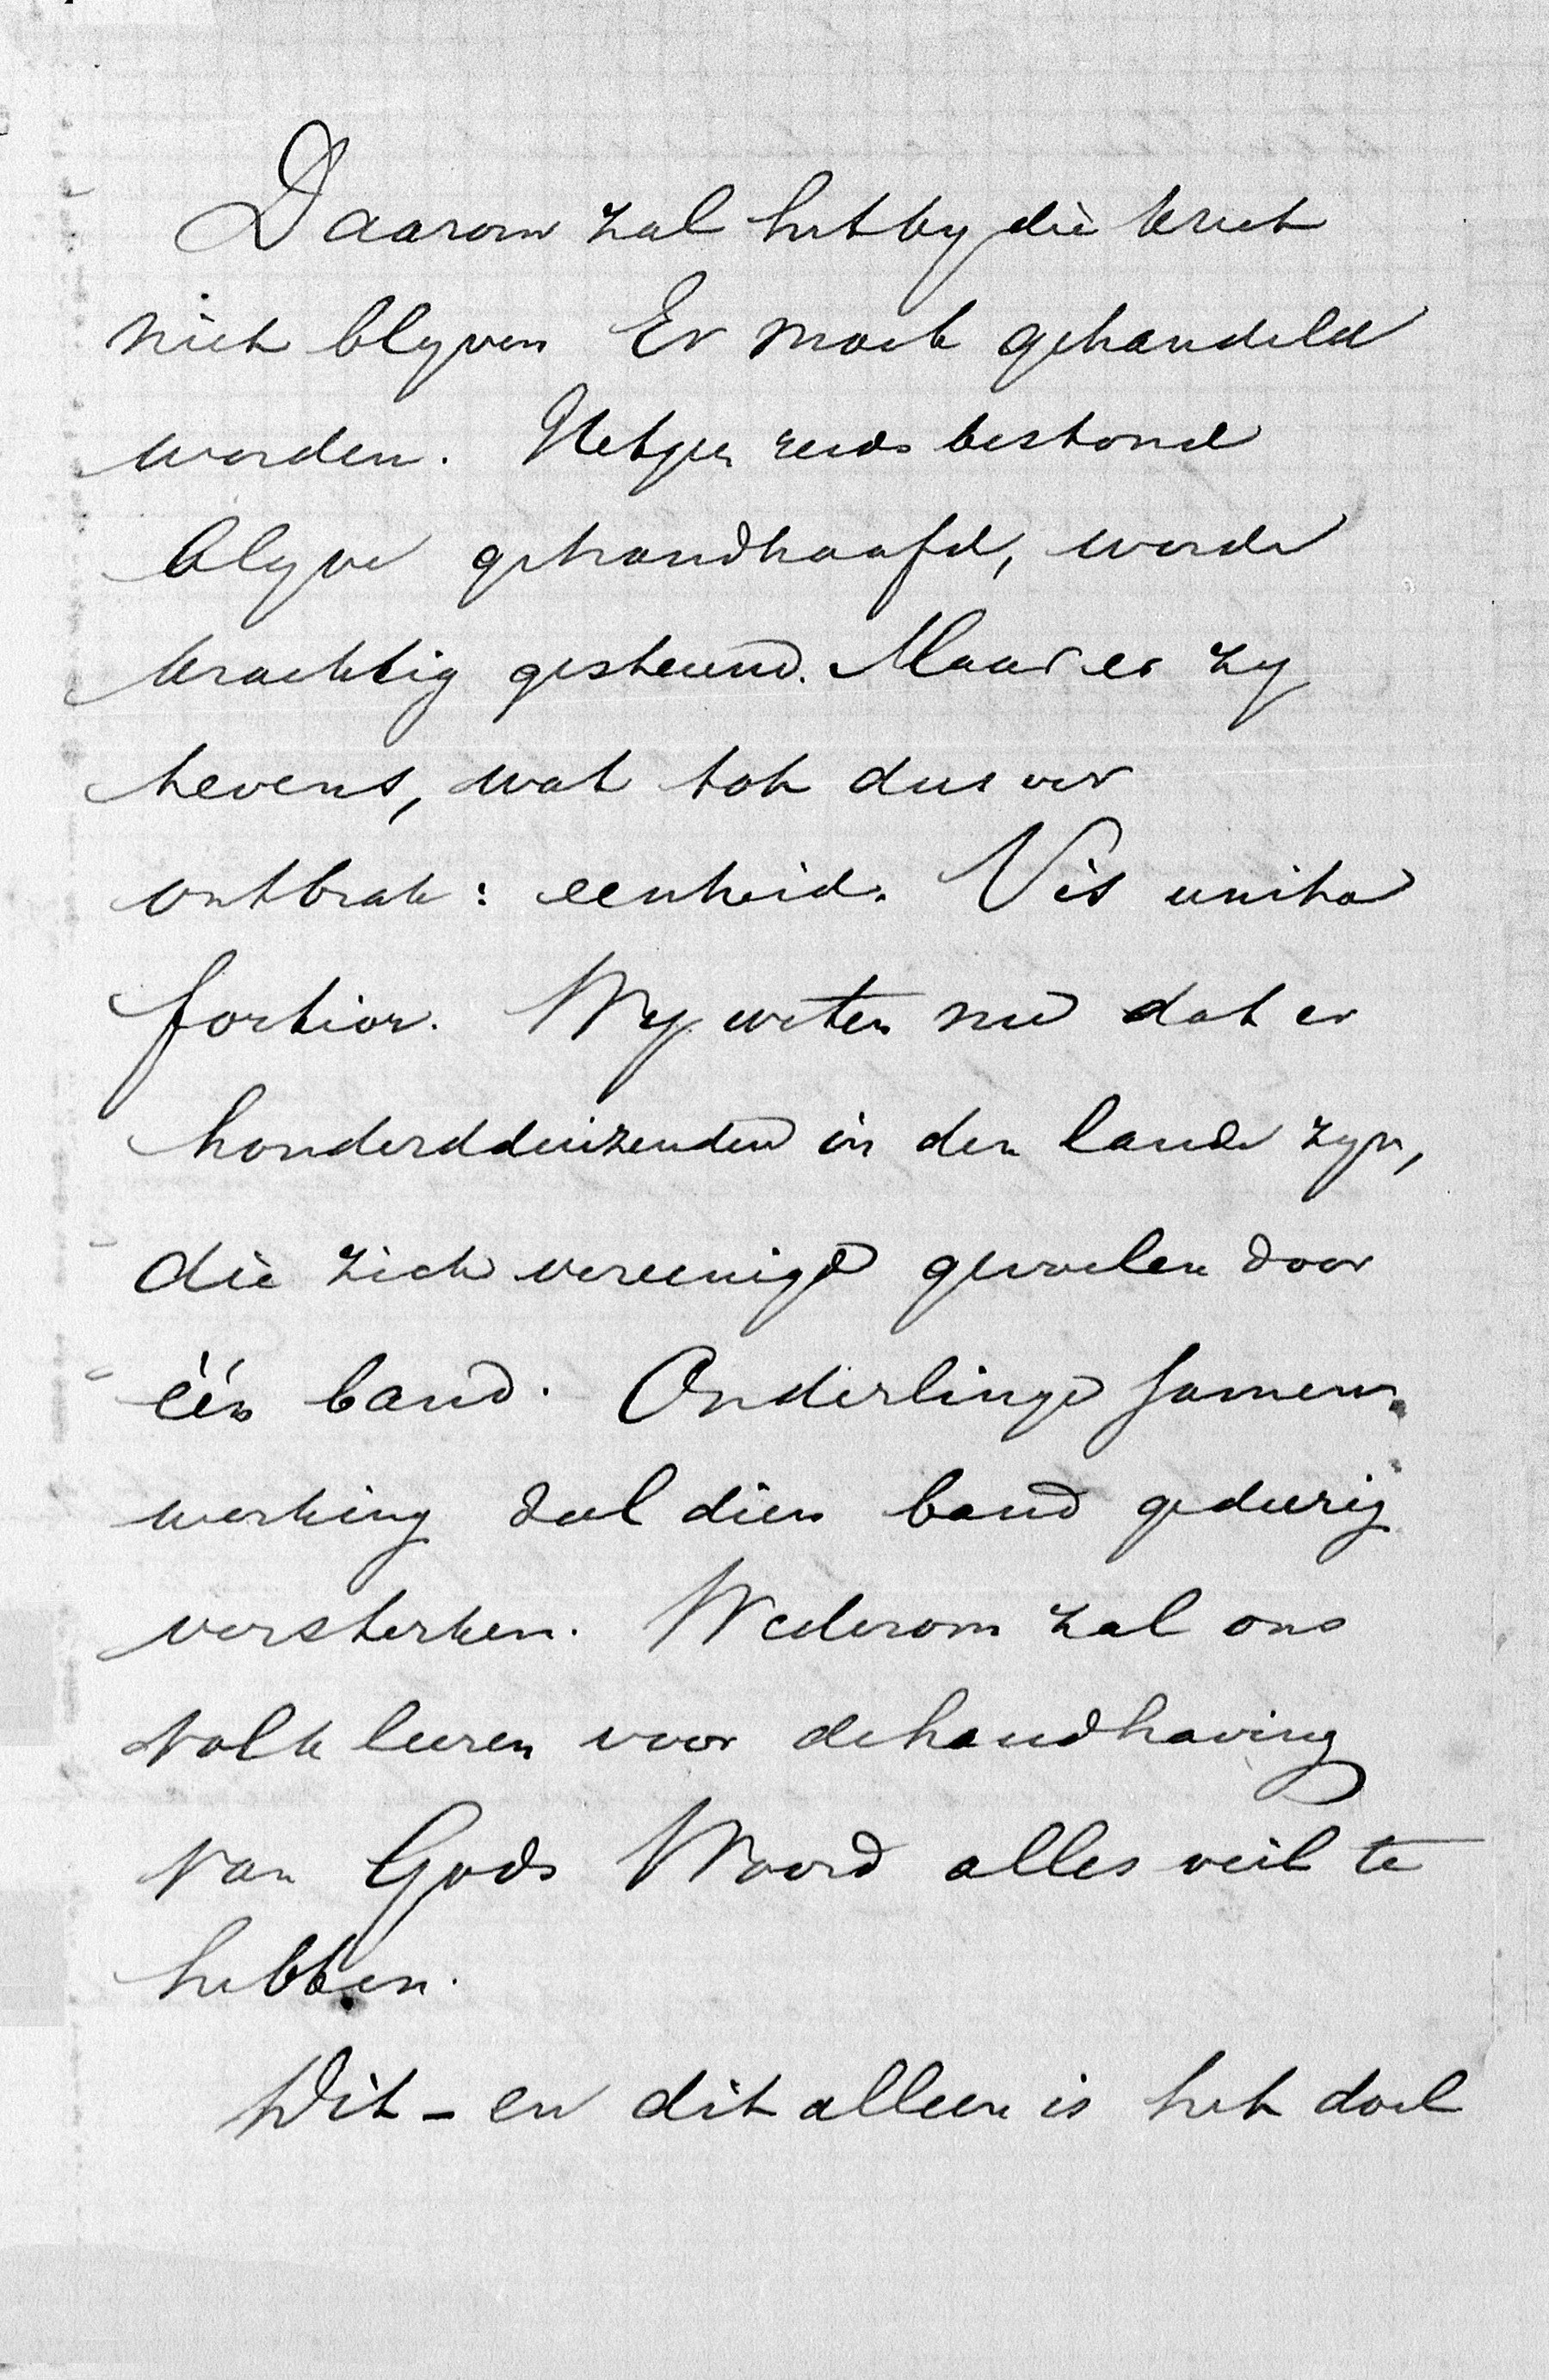 Daarom zal het by die kreet
niet blyven Er moet gehandeld
worden. Hetgeen reeds bestond
blyve gehandhaafd, worde
krachtig gesteund. Maar er zy
tevens, wat tot dus ver
ontbrak: eenheid. Vis unita
fortior. Wy weten nu dat er
honderdduizenden in den lande zyn,
die zich vereenigd gevoelen door
één band. Onderlinge samen-
werking zal dien band gedurig
versterken. Wederom zal ons
volk leeren voor de handhaving
van Gods Woord alles veil te
hebben.
Dit - en dit alleen is het doel